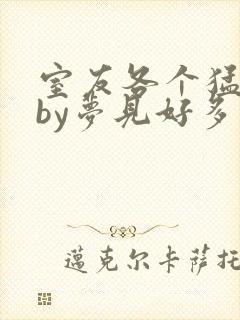 室友各个猛
by夢見好多
邁克尔卡萨托